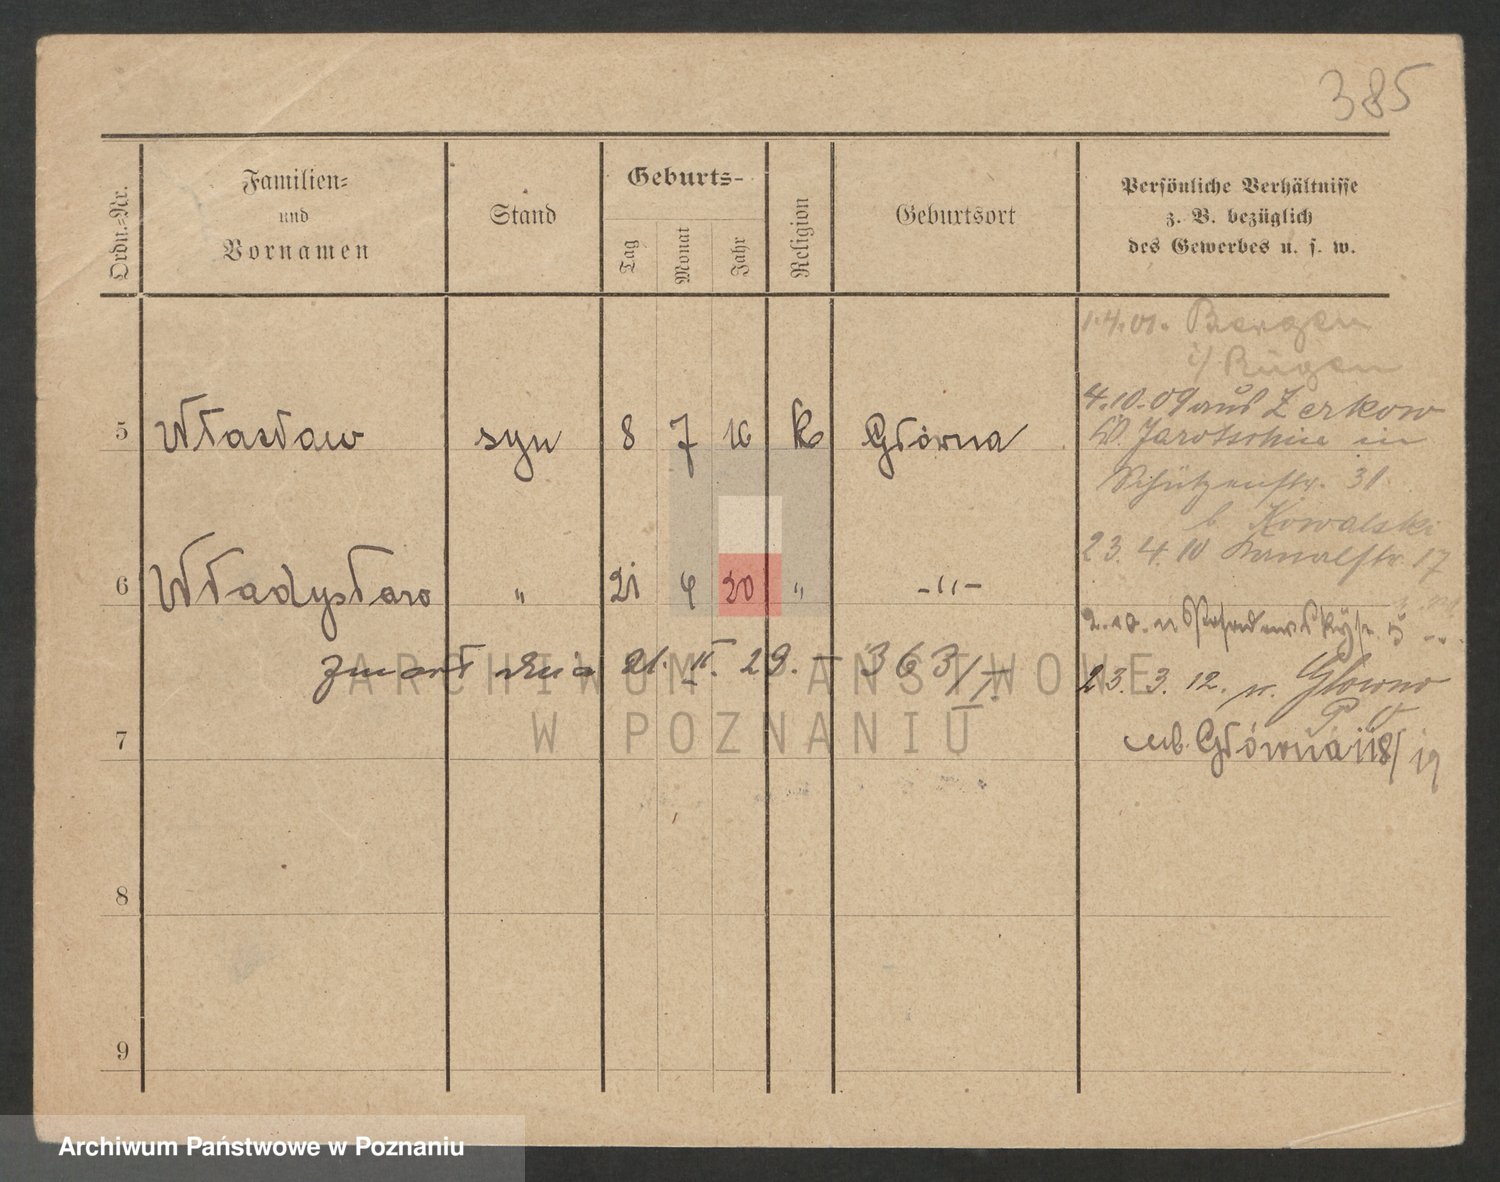 385
Ordn.-Nr.
Familien-
und
Vornamen
Stand
Geburts-
Tag
Monat
Jahr
Religion
Geburtsort
Persönliche Verhältnisse
z. B. bezüglich
des Gewerbes u. s. w.
1.4.01. Bergen
i/ Rügen
4.10.09 aus Zerkow
Jarotschin in
Schützenstr. 31
b. Kowalski
23. 4. 10 Kanalstr. 17
5 Wacław syn 8 7 16 k Główna
6 Władysław " 21 4 20 " -"-
zmarł dnia 21. II. 29. - 363/
23. 3. 12. n. Glowno
Główna 118/19
7
8
9
ARCHIWUM PAŃSTWOWE
W POZNANIU
Archiwum Państwowe w Poznaniu